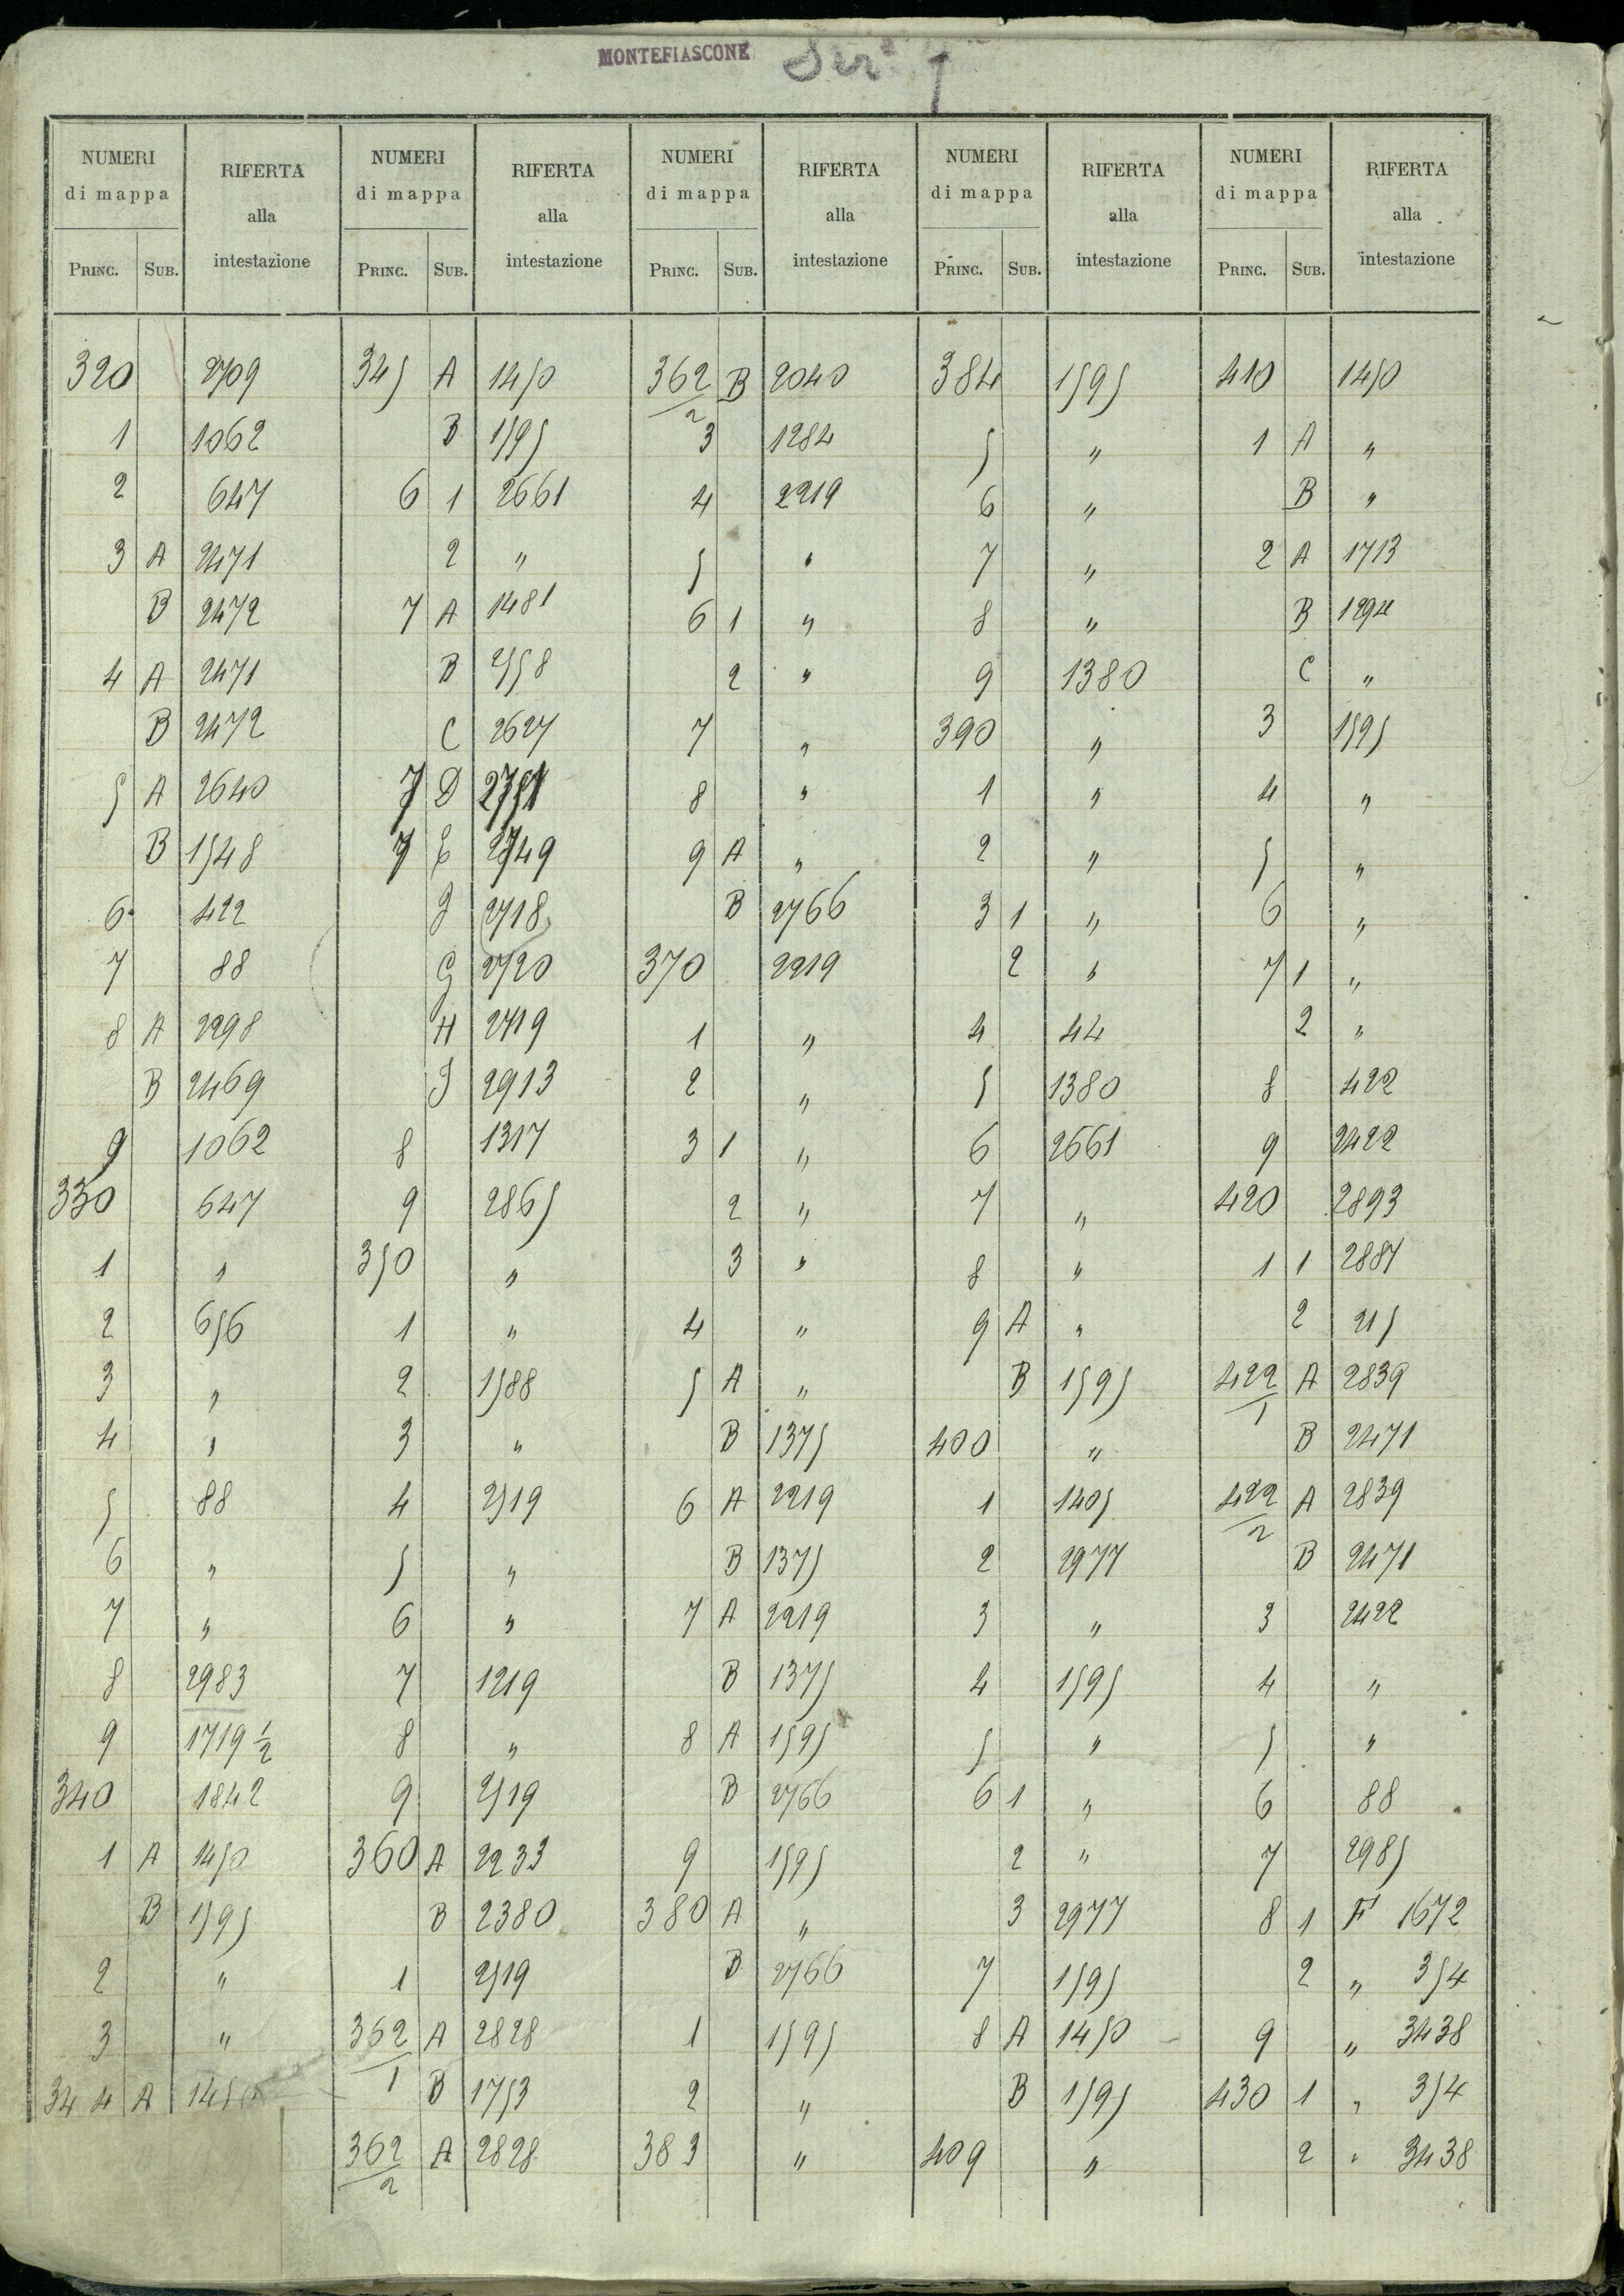 MONTEFIASCONE
NUMERI di mappa
RIFERTA alla intestazione
PRINC. SUB.
320 2709
1 1062
2 647
3 A 2471
B 2472
4 A 2471
B 2472
5 A 2640
B 1548
6 422
7 88
8 A 2298
B 2469
9 1062
330 647
1 "
2 656
3 "
4 "
5 88
6 "
7 "
8 2983
9 1719 1/2
340 1842
1 A 1450
B 1595
2 "
3 "
344 A 1450
NUMERI di mappa
RIFERTA alla intestazione
PRINC. SUB.
345 A 1450
B 1595
6 1 2661
2 "
7 A 1481
B 2558
C 2627
7 D 2751
7 E 2749
F 2718
G 2720
H 2719
I 2913
8 1317
9 2865
350 "
1 "
2 1588
3 "
4 2519
5 "
6 "
7 1219
8 "
9 2519
360 A 2233
B 2380
1 2519
362/1 A 2828
B 1753
362/2 A 2828
NUMERI di mappa
RIFERTA alla intestazione
PRINC. SUB.
362/2 B 2040
3 1284
4 2219
5 "
6 1 "
2 "
7 "
8 "
9 A "
B 2766
370 2219
1 "
2 "
3 1 "
2 "
3 "
4 "
5 A "
B 1375
6 A 2219
B 1375
7 A 2219
B 1375
8 A 1595
B 2766
9 1595
380 A "
B 2766
1 1595
2 "
383 "
NUMERI di mappa
RIFERTA alla intestazione
PRINC. SUB.
384 1595
5 "
6 "
7 "
8 "
9 1380
390 "
1 "
2 "
3 1 "
2 "
4 44
5 1380
6 2661
7 "
8 "
9 A "
B 1595
400 "
1 1405
2 2977
3 "
4 1595
5 "
6 1 "
2 "
3 2977
7 1595
8 A 1450
B 1595
409 "
NUMERI di mappa
RIFERTA alla intestazione
PRINC. SUB.
410 1450
1 A "
B "
2 A 1713
B 1294
C "
3 1595
4 "
5 "
6 "
7 1 "
2 "
8 422
9 2422
420 2893
1 1 2887
2 215
422/1 A 2839
B 2471
422/2 A 2839
B 2471
3 2422
4 "
5 "
6 88
7 2985
8 1 F 1672
2 " 354
9 " 3438
430 1 " 354
2 " 3438